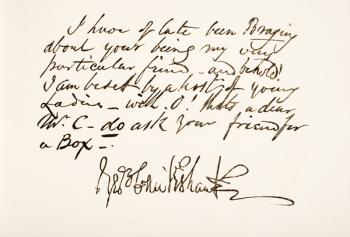 I have of late been Braging
about your being my very
particular friend - and behold!
I am beset by a host of young
Ladies - with O! thats a dear
Mr. C - do ask your friend for
a Box -.
Geo Cruikshank